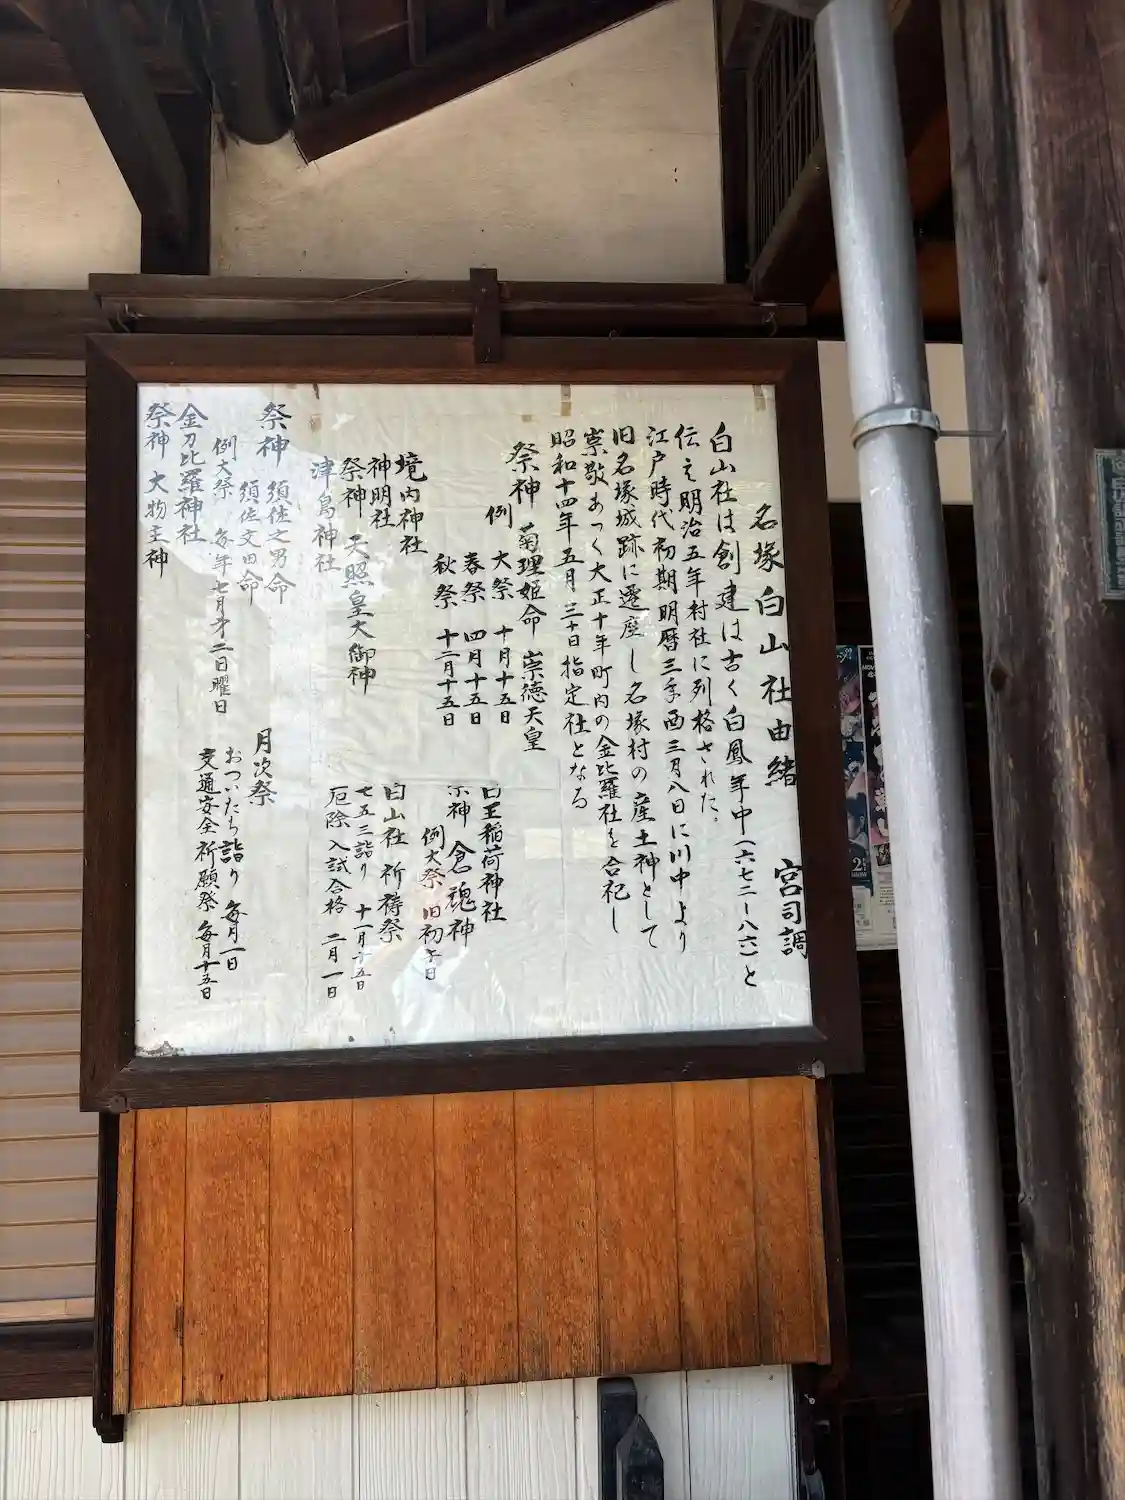 名塚白山社由緒 宮司調
白山社は創建は古く白鳳年中(六七二ー八六)と
伝え明治五年村社に列格された。
江戸時代初期明暦三年酉三月八日に川中より
旧名塚城跡に遷座し名塚村の産土神として
崇敬あつく大正十年町内の金比羅社を合祀し
昭和十四年五月三十日指定社となる
祭神 菊理姫命 崇徳天皇
例 大祭 十月十五日
春祭 四月十五日
秋祭 十二月十五日
境内神社
神明社
祭神 天照皇大御神
津島神社
祭神 須佐之男命
須佐 命
例大祭 毎年七月第二日曜日
金刀比羅神社
祭神 大物主神
白王稲荷神社
祭神 倉魂神
例大祭 旧初午日
白山社 祈祷祭
七五三詣り 十一月十五日
厄除入試合格 二月一日
月次祭
おついたち詣り 毎月一日
交通安全祈願祭 毎月十五日